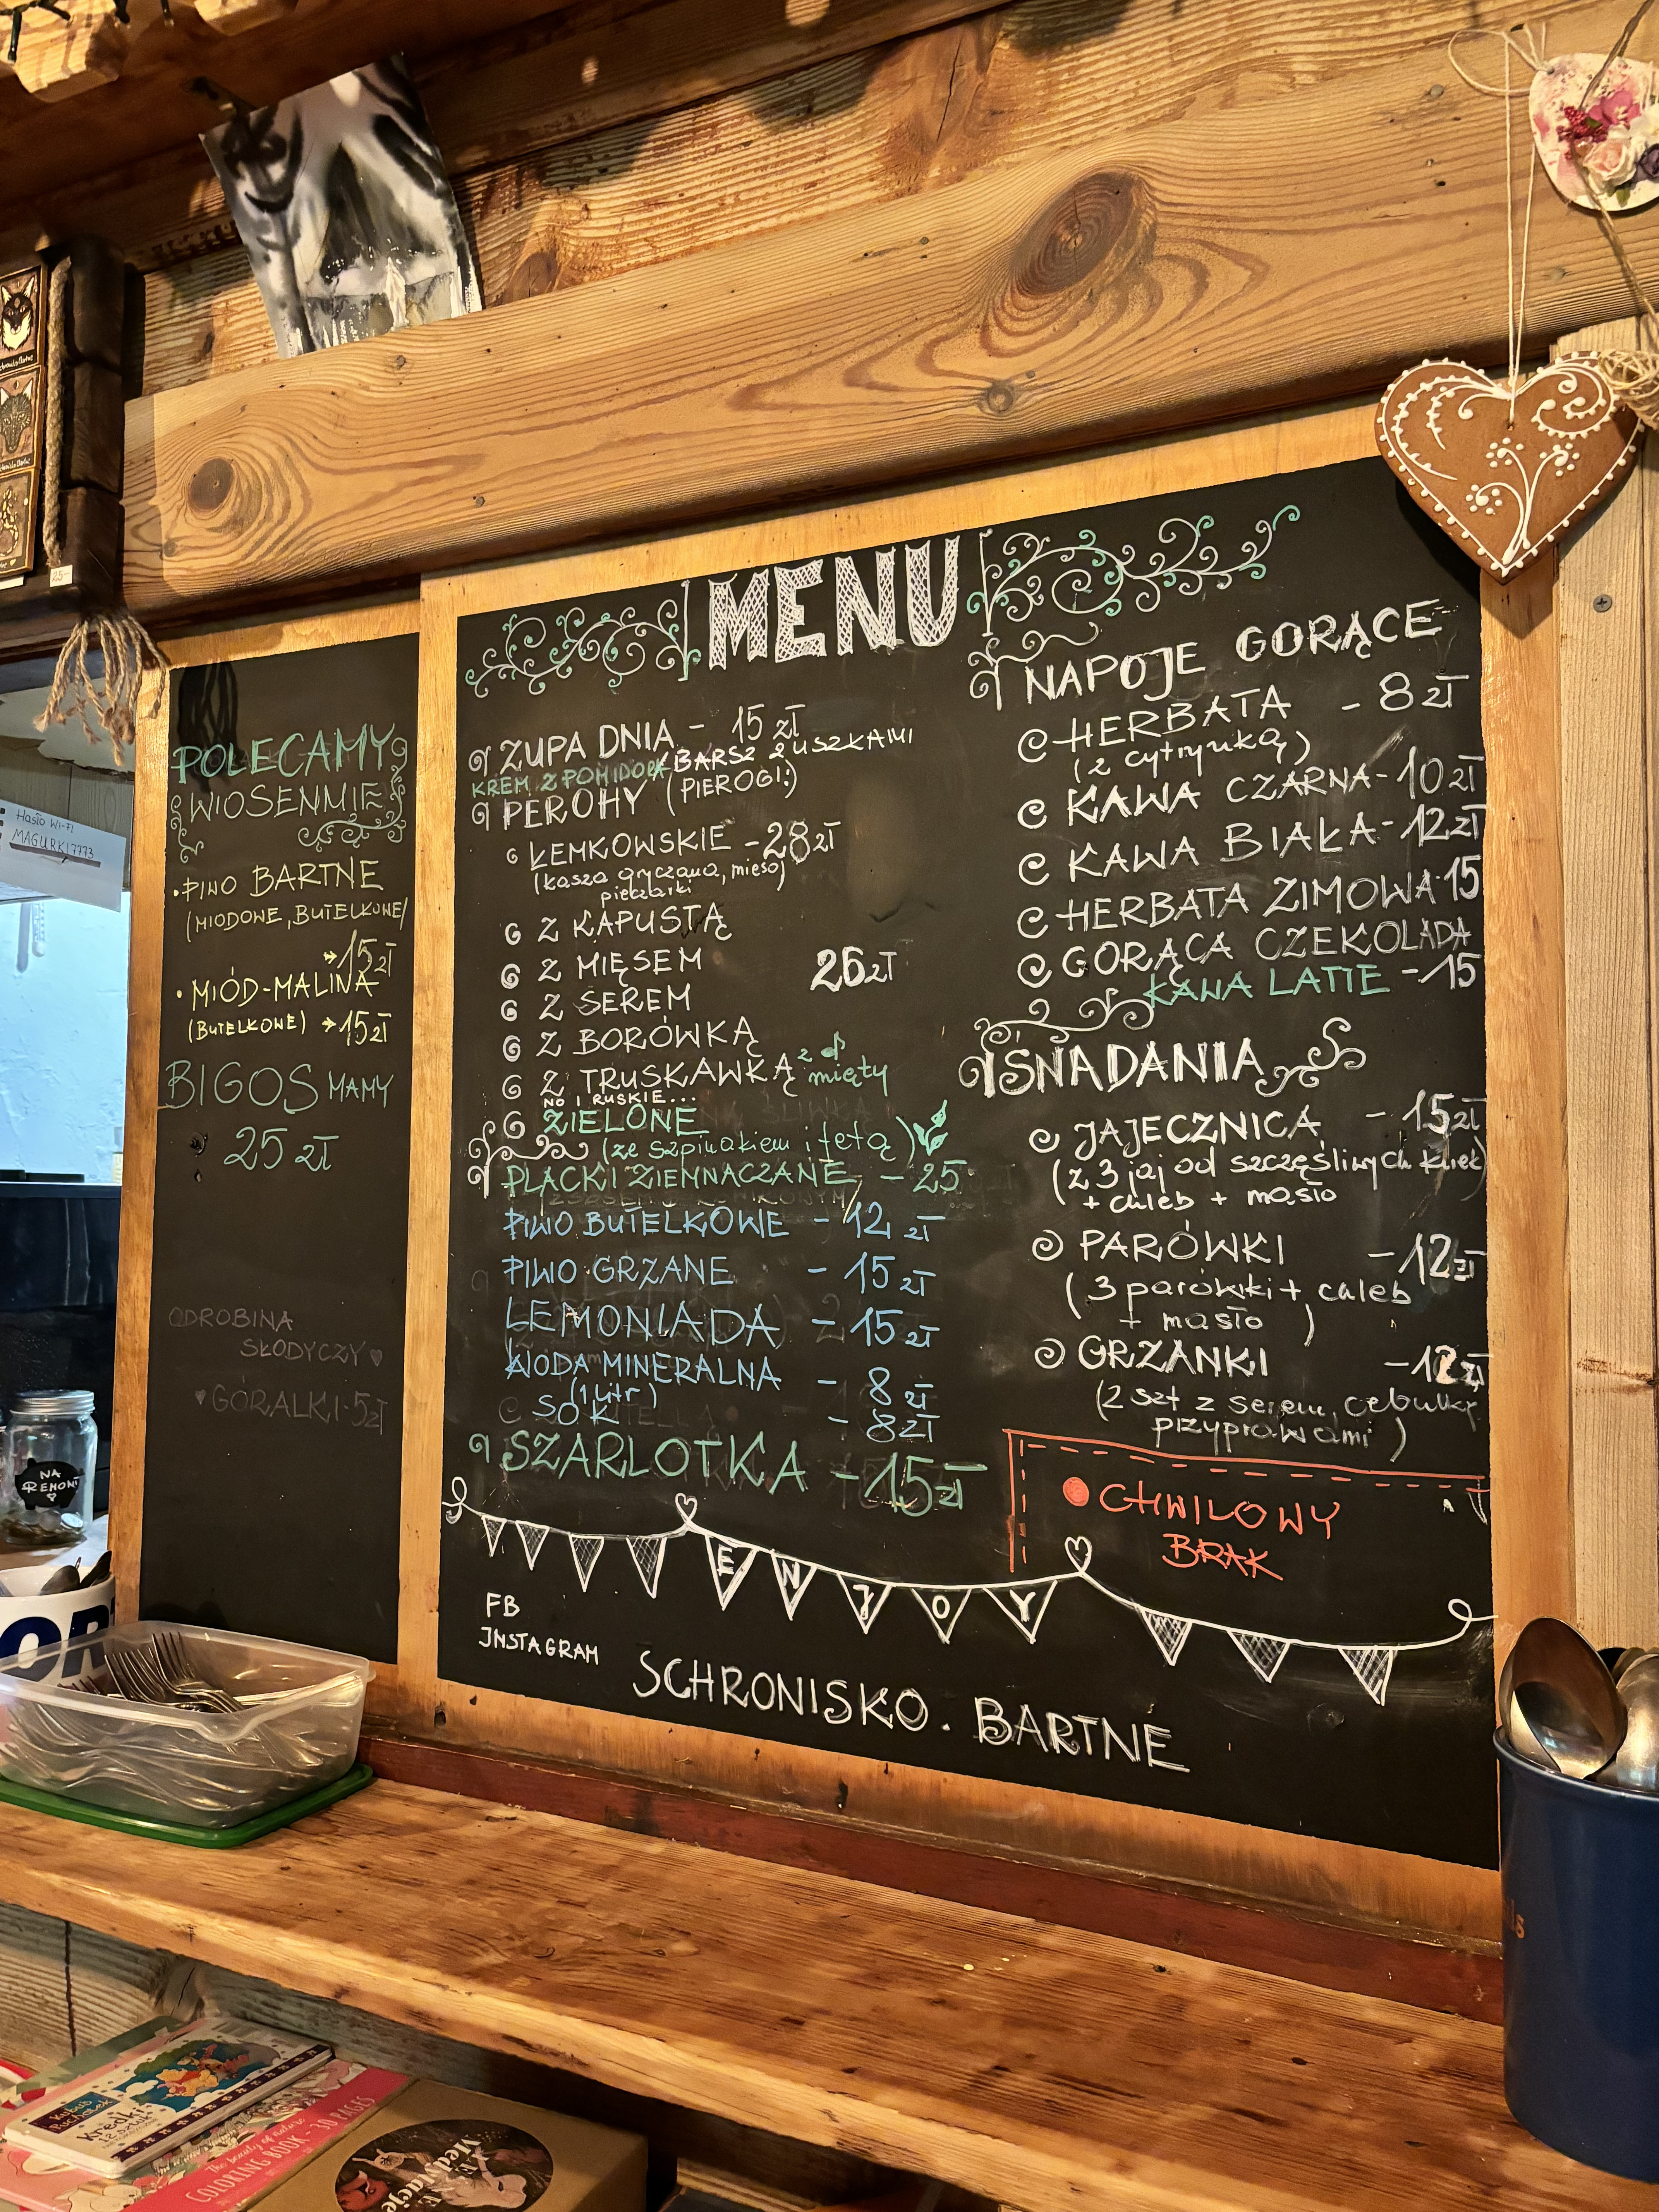 Hasło Wi-Fi
MAGURKI7773
POLECAMY
WIOSENNIE
• PIWO BARTNE
(MIODOWE, BUTELKOWE)
→ 15 zł
• MIÓD-MALINA
(BUTELKOWE) → 15 zł
BIGOS MAMY
25 zł
ODROBINA
SŁODYCZY ♥
♥ GÓRALKI - 5 zł
MENU
ZUPA DNIA - 15 zł
KREM Z POMIDORA / BARSZ Z USZKAMI
PEROHY (PIEROGI:)
ŁEMKOWSKIE - 28 zł
(kasza gryczana, mięso,
pieczarki
Z KAPUSTĄ
Z MIĘSEM 26 zł
Z SEREM
Z BORÓWKĄ
Z TRUSKAWKĄ z mięty
NO I RUSKIE...
ZIELONE
(ze szpinakiem i fetą)
PLACKI ZIEMNACZANE - 25
PIWO BUTELKOWE - 12 zł
PIWO GRZANE - 15 zł
LEMONIADA - 15 zł
WODA MINERALNA - 8 zł
(1 litr)
SOK - 8 zł
SZARLOTKA - 15 zł
NAPOJE GORĄCE
HERBATA - 8 zł
(z cytrynką)
KAWA CZARNA - 10 zł
KAWA BIAŁA - 12 zł
HERBATA ZIMOWA - 15
GORĄCA CZEKOLADA
KAWA LATTE - 15
ŚNADANIA
JAJECZNICA - 15 zł
(z 3 jaj od szczęśliwych kurek)
+ chleb + masło
PARÓWKI - 12 zł
(3 parówki + chleb
+ masło )
GRZANKI - 12 zł
(2 szt z serem, cebulką
przyprawami )
CHWILOWY
BRAK
ENJOY
FB
INSTAGRAM
SCHRONISKO . BARTNE
NA
REMONT
Kubuś
Puchatek
Kredki
12 sztuk
The beauty of nature
COLORING BOOK - 30 PAGES